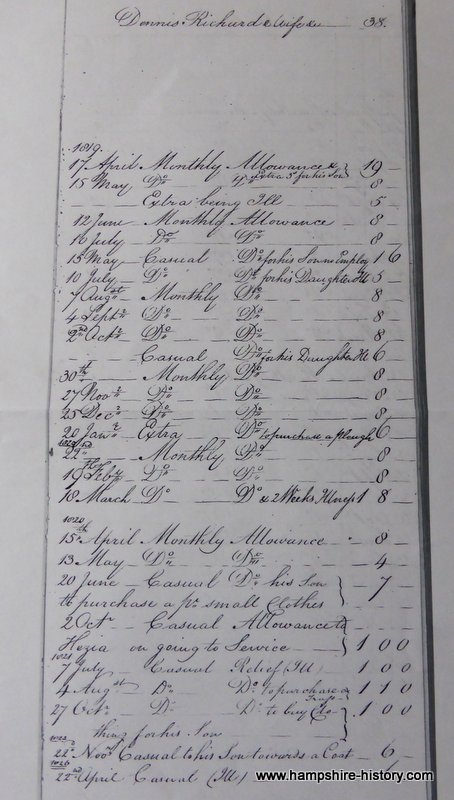 Dennis Richard & Wife &c — 38.
1819.
17 April Monthly Allowance & } 19 —
15 May Do Do Extra 3s for his Son 8 —
— Extra being Ill — 5 —
12 June — Monthly Allowance — 8 —
16 July — Do Do — 8 —
15 May — Casual Do for his Son no Employ 1 6
10 July — Do Do for his Daughter Ill 5 —
7 Augst — Monthly Do — 8 —
4 Septr Do Do — 8 —
2nd Octr Do Do — 8 —
— Casual Do for his Daughter Ill 6 —
30th — Monthly Do — 8 —
27 Novr — Do Do — 8 —
25 Decr Do Do — 8 —
20 Janr Extra — to purchase a plough 6 —
1820
22nd — Monthly Do — 8 —
19 Feby Do Do — 8 —
18 March Do Do & 2 Weeks Illness 1 8 —
1820
15th April Monthly Allowance — 8 —
13 May — Do Do — 4 —
20 June — Casual Do his Son } — 7 —
to purchase a pr small Clothes
2 Octr — Casual Allowance to }
Hezia on going to Service — 1 0 0
1821
7 July — Casual Relief (Ill) — 1 0 0
4 Augst Do — Do to purchase a 1 1 0
27 Octr — Do — Do to buy Clo- } 1 0 0
thing for his Son —
22d Novr Casual to his Son towards a Coat — 6 —
1826
22nd April Casual (Ill)
www.hampshire-history.com